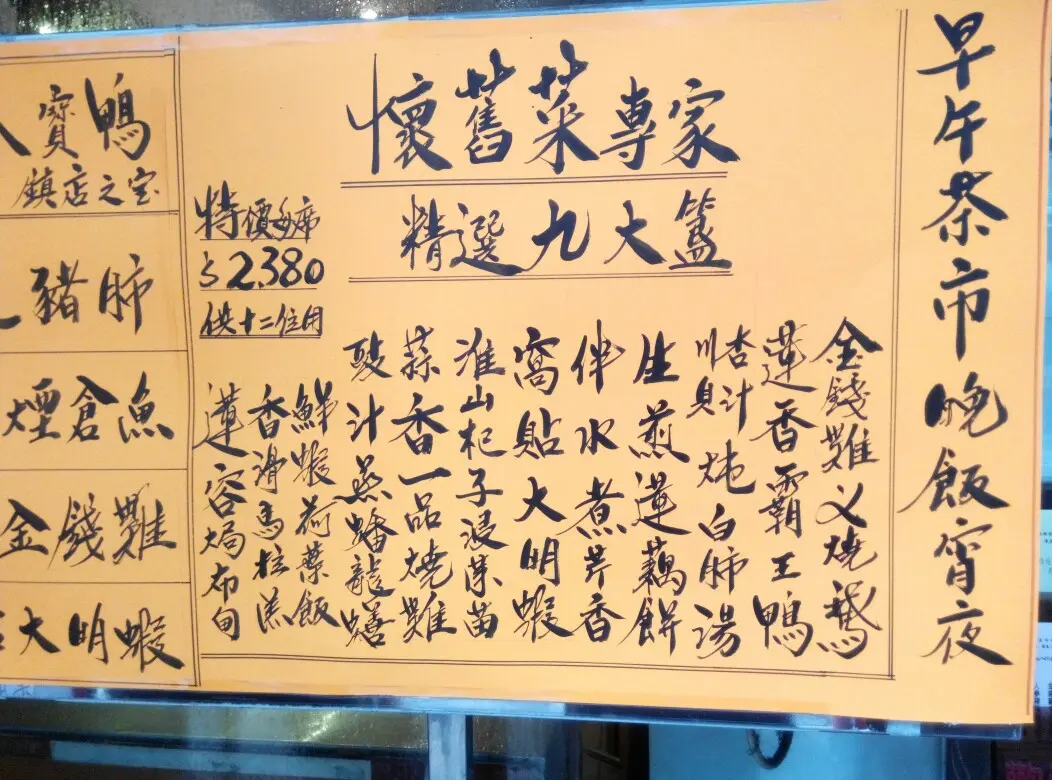 早午茶市晚飯宵夜
懷舊菜專家
精選九大簋
特價每席
$2,380
供十二位用
金錢雞义燒鵝
蓮香霸王鴨
杏汁川貝炖白肺湯
生煎蓮藕餅
伴水煮芹香
窩貼大明蝦
淮山杞子浸菜苗
蒜香一品燒雞
豉汁蒸蟠龍鱔
鮮蝦荷葉飯
香滑馬拉羔
蓮容焗布甸
寶鴨
鎮店之宝
豬肺
煙倉魚
金錢雞
大明蝦